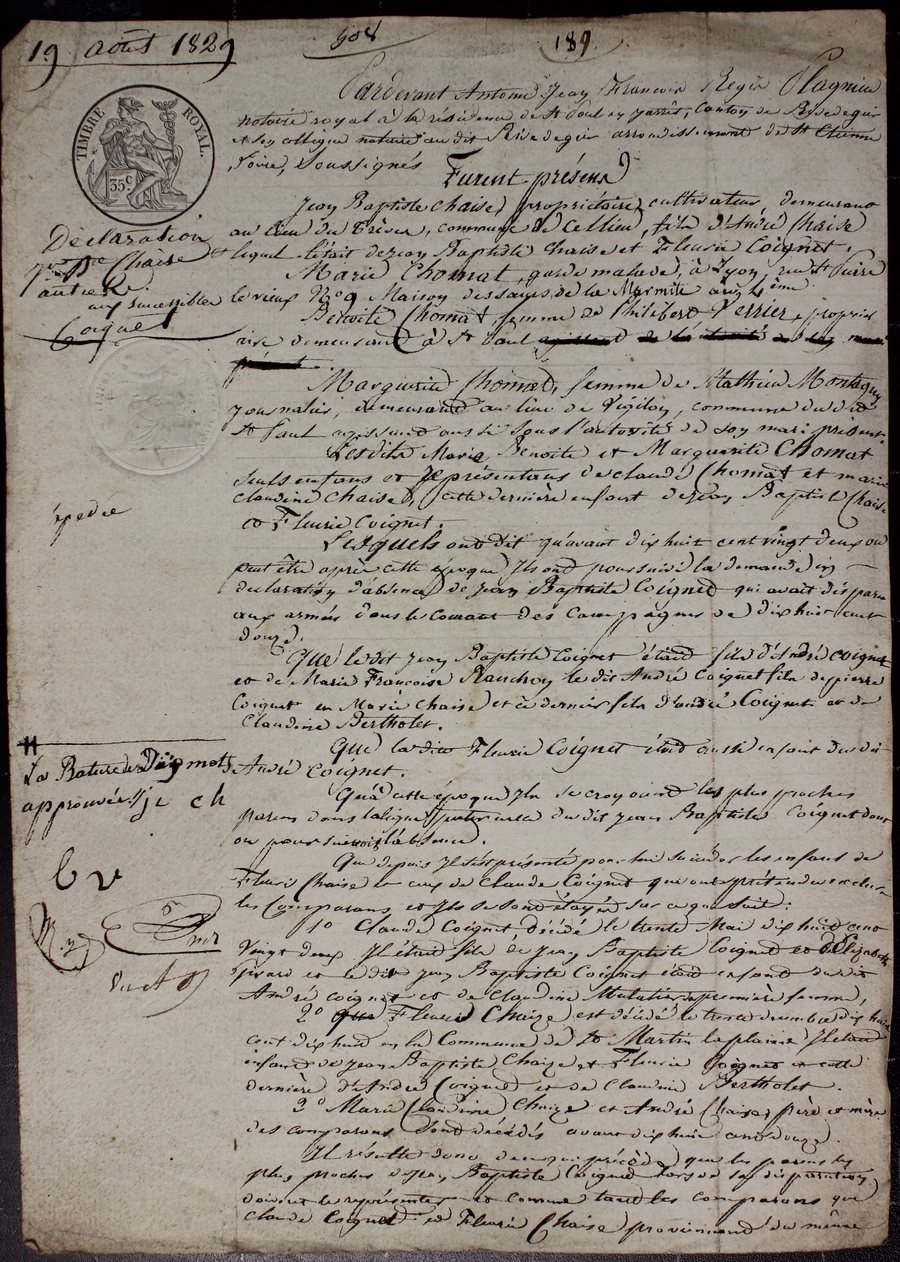 19 août 1829
508
189.
TIMBRE ROYAL.
35.c
Pardevant Antoine Jean François Regis Plagnieu
notaire royal à la résidence de St Paul en jarrêt, Canton de Rivedegier
et son collègue notaire au dit Rivedegier arrondissement de St Etienne
Loire, Soussignés
Furent présens
Jean Baptiste chaise, propriétaire cultivateur, demeurant
au lieu de Trèves, commune de Cellieu, fils d'André Chaise
lequel l'était de jean Baptiste Chaise et Fleurie Coignet.
Marie Chomat, garde malade, à Lyon, rue St Pierre
le vieux No 9 Maison des sages, de la Marmite au 4ème
Benoite Chomat femme de Philibert Verrier, proprié
taire demeurant à St Paul
Déclaration
jean Bte Chaise et
autres.
aux successibles
Coignet
Marguerite Chomat, femme de Mathieu Montagny
journalier, demeurant au lieu de Vigilon, commune du dit
St Paul agissant aussi sous l'autorité de son mari présent.
Lesdites Marie Benoite et Marguerite Chomat
seuls enfans et représentans de claude Chomat et marie
claudine chaise, cette dernière enfant de jean Baptiste Chaise
et Fleurie Coignet.
épedée
Lesquels ont dit qu'avant dix huit cent vingt deux ou
peut être après cette époque Ils ont poursuivi la demande en
déclaration d'absence de jean Baptiste Coignet qui avait disparu
aux armées dans le courant des Campagnes de dix huit cent
douze.
Que le dit jean Baptiste Coignet était fils d'André coignet
et de Marie Françoise Planchon le dit André Coignet fils de pierre
Coignet et Marie chaise et ce dernier fils d'andré Coignet et de
Claudine Bertholet.
Que la dite Fleurie Coignet était aussi enfant du dit
André Coignet.
Qu'à cette époque Ils se croyaient les plus proches
parens dans la ligne paternelle du dit jean Baptiste coignet dont
on poursuivait l'absence.
La Rature de Dix mots
approuvée // j c ch
Que depuis Il s'est présenté pour lui succéder les enfans de
Fleurie Chaise et ceux de Claude Coignet qui ont prétendu exclure
les Comparans et Ils se sont étayés sur ce qui suit:
b v
1o Claude Coignet décédé le trente Mai dix huit cent
Vingt deux Il était fils de Jean Baptiste Coignet et d'Elizabeth
Girard et le dit jean Baptiste Coignet était enfant du dit
André coignet et de Claudine première femme,
2o Fleurie Chaize est décédé le treize décembre dix huit
cent dix huit en la Commune de St Martin la plaine Il était
enfant de Jean Baptiste Chaize et Fleurie Coignet et cette
dernière d'André Coignet et de Claudine Bertholet.
3o Marie Claudine Chaize et André Chaise, père et mère
des comparans sont décédés avant dix huit cent douze.
Il résulte donc de ce qui précède, que les parens les
plus proches de Jean Baptiste Coignet lors de sa disparution
doivent le représenter et comme tant les comparans que
Claude Coignet et Fleurie Chaise proviennent du même